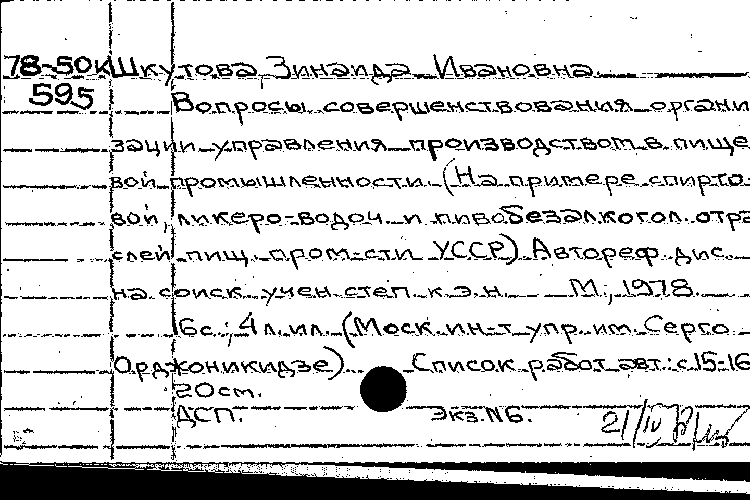 78-50к Шкутова, Зинаида Ивановна
595 Вопросы совершенствования органи
зации управления производством в пище
вой промышленности. (На примере спирто-
вой, ликеро-водоч. и пивобезалкогол. отра
слей пищ. пром-сти УССР). Автореф. дис.
на соиск. учен. степ. к.э.н. М., 1978.
16с.; 4 л. ил. (Моск. ин-т упр. им. Серго
Орджоникидзе). Список работ авт.: с.15-16
20 см.
ДСП. Экз. N6.
21/IV